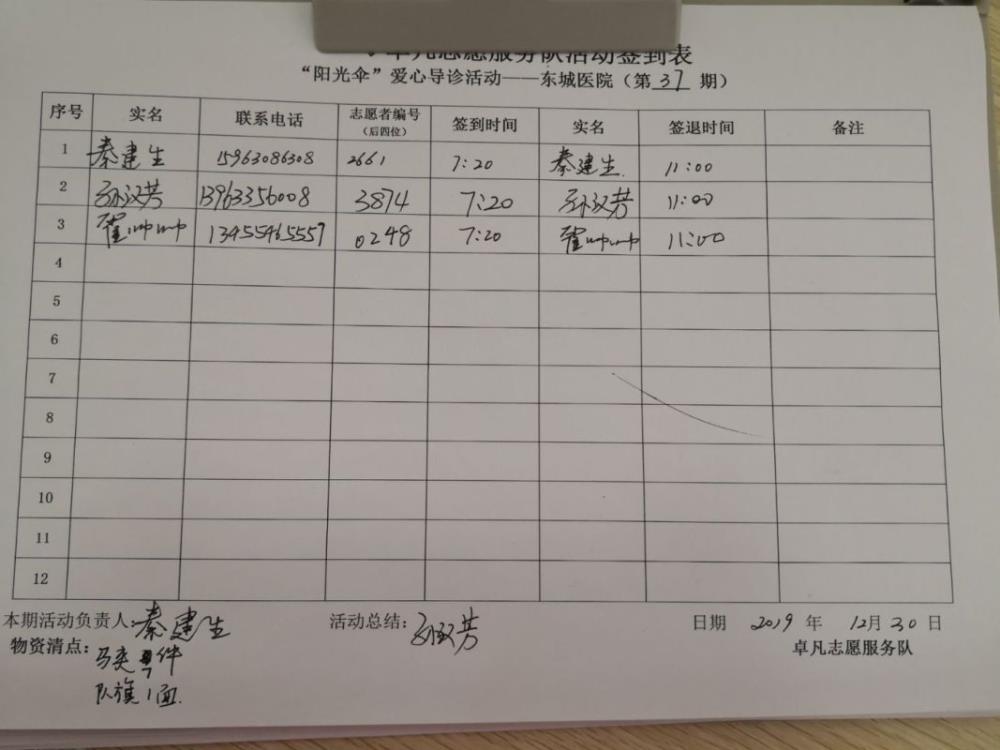 卓凡志愿服务队活动签到表
“阳光伞”爱心导诊活动——东城医院（第 37 期）
序号 实名 联系电话 志愿者编号（后四位） 签到时间 实名 签退时间 备注
1 秦建生 15963086308 2661 7:20 秦建生 11:00
2 孙汉芳 13963356008 3874 7:20 孙汉芳 11:00
3 翟帅帅 13455465557 0248 7:20 翟帅帅 11:00
4
5
6
7
8
9
10
11
12
本期活动负责人：秦建生 活动总结：孙汉芳 日期 2019 年 12月 30 日
物资清点： 卓凡志愿服务队
马夹 件
队旗1面.